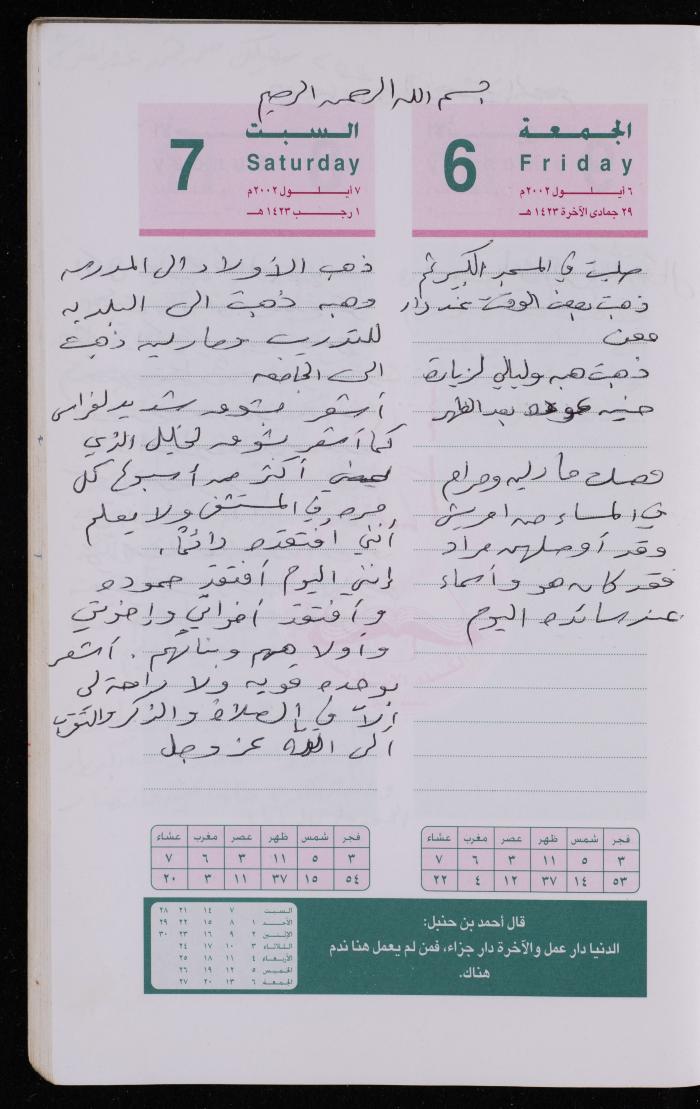 بسم الله الرحمن الرحيم
الجمعة
6
Friday
٦ أيلول ٢٠٠٢م
٢٩ جمادى الآخرة ١٤٢٣ هـ
صليت في المسجد الكبير ثم
ذهبت بعض الوقت عند دار
معن
ذهبت هبه وليالي لزيارة
بعد الظهر
وصلت مارليه ومرام
في المساء من امريش
وقد أوصلهن مراد
فقد كان هو وأسماء
عند سائده اليوم
السبت
7
Saturday
٧ أيلول ٢٠٠٢م
١ رجب ١٤٢٣ هـ
ذهب الأولاد الى المدرسه
وهبه ذهبت الى البلديه
للتدريب ومارليه ذهبت
الى الجامعه
أشعر بشوق شديد لفراس
كما أشعر بشوق لخليل الذي
أكثر من أسبوع كل
مره في المستشفى ولا يعلم
أنني أفتقده دائماً.
إنني اليوم أفتقد حموده
وأفتقد أخواتي وإخوتي
وأولادهم وبناتهم. أشعر
بوحده قويه ولا راحة لي
إلا في الصلاة والذكر والتقرب
الى الله عز وجل
فجر شمس ظهر عصر مغرب عشاء
٣ ٥ ١١ ٣ ٦ ٧
٥٣ ١٤ ٣٧ ١٢ ٤ ٢٢
فجر شمس ظهر عصر مغرب عشاء
٣ ٥ ١١ ٣ ٦ ٧
٥٤ ١٥ ٣٧ ١١ ٣ ٢٠
قال أحمد بن حنبل:
الدنيا دار عمل والآخرة دار جزاء، فمن لم يعمل هنا ندم
هناك.
السبت ٧ ١٤ ٢١ ٢٨
الأحد ١ ٨ ١٥ ٢٢ ٢٩
الإثنين ٢ ٩ ١٦ ٢٣ ٣٠
الثلاثاء ٣ ١٠ ١٧ ٢٤
الأربعاء ٤ ١١ ١٨ ٢٥
الخميس ٥ ١٢ ١٩ ٢٦
الجمعة ٦ ١٣ ٢٠ ٢٧